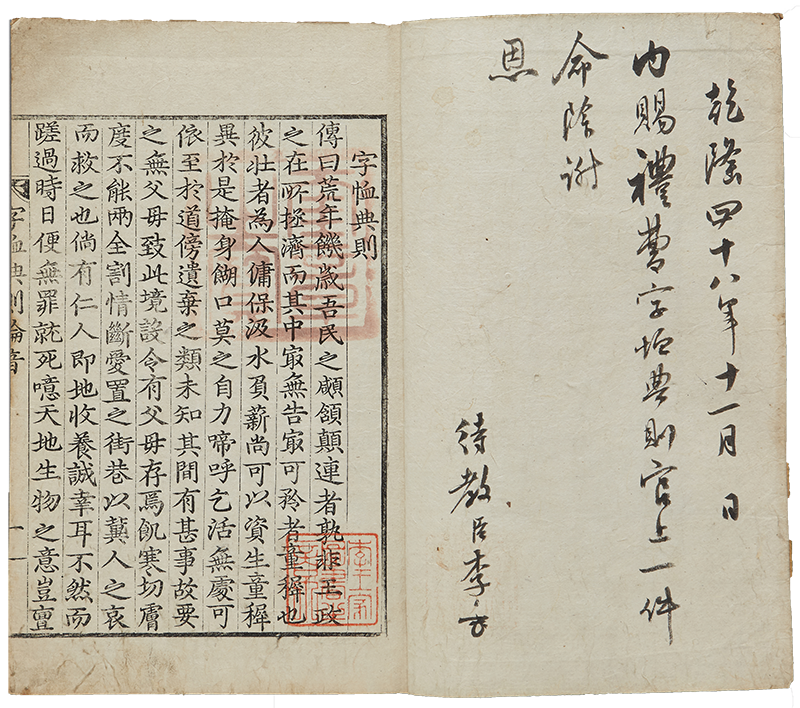 乾隆四十八年十一月 日
內賜禮曹字恤典則官上一件
命除謝
恩
待敎臣李
字恤典則
傳曰荒年饑歲吾民之顑頷顚連者孰非王政
之在所拯濟而其中㝡無告㝡可矜者童穉也
彼壯者為人傭保汲水負薪尚可以資生童穉
異於是掩身餬口莫之自力啼呼乞活無處可
依至於道傍遺棄之類未知其間有甚事故要
之無父母致此境設令有父母存焉飢寒切膚
度不能兩全割情斷愛置之街巷以冀人之哀
而救之也倘有仁人即地收養誠幸耳不然而
蹉過時日便無罪就死噫天地生物之意豈亶
字恤典則綸音 一